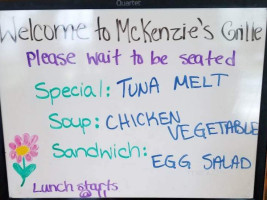 Quartet
Welcome to McKenzie's Grille
Please wait to be seated
Special: TUNA MELT
Soup: CHICKEN
VEGETABLE
Sandwich:
EGG SALAD
Lunch starts
@ 11